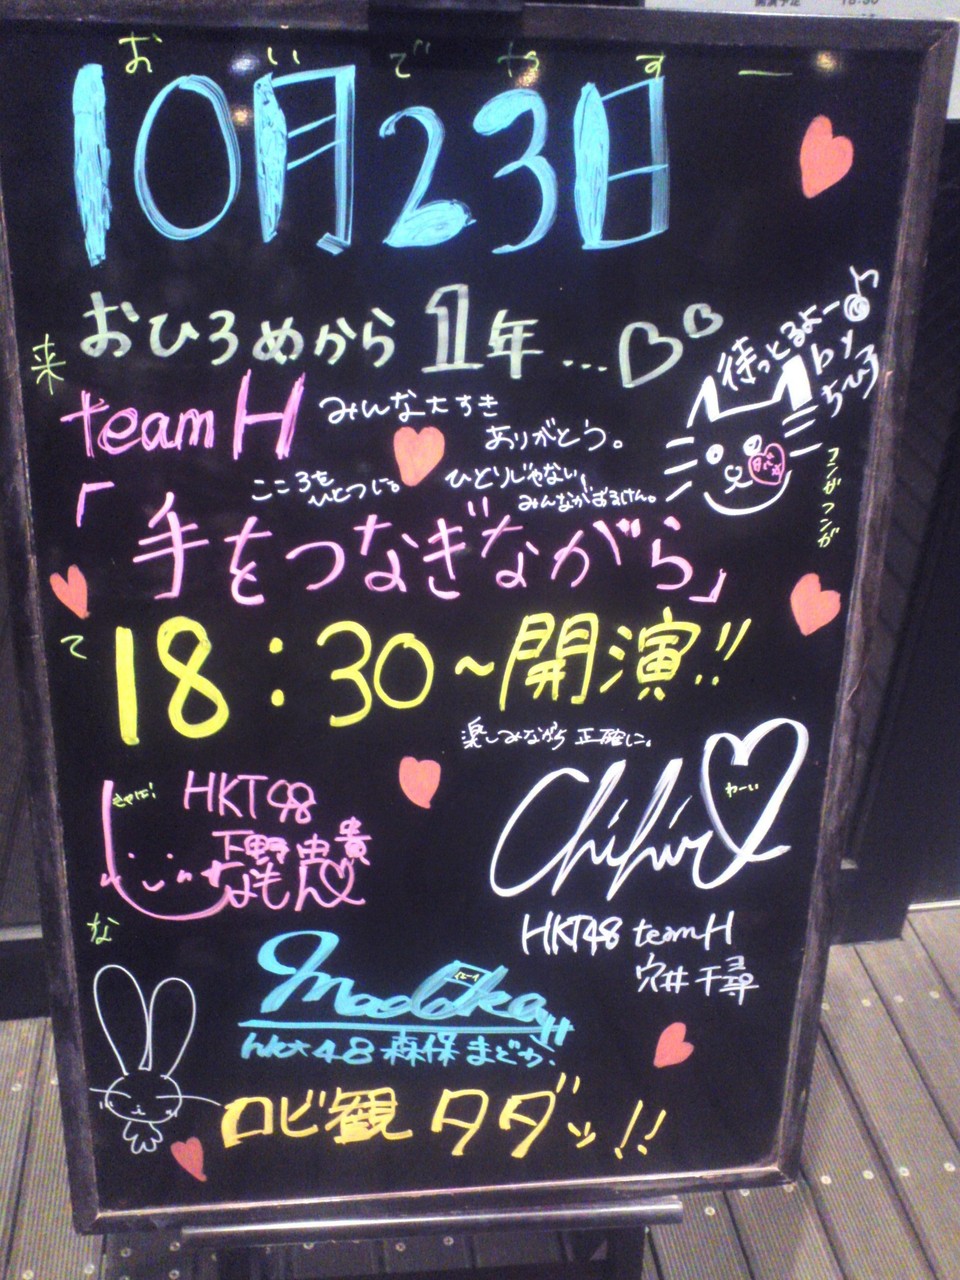 おいでやすー
10月23日
おひろめから1年...
待っとるよー♪
by ちひろ
来
team H
みんな大すき
ありがとう。
こころを
ひとつに。
ひとりじゃない!
みんながおるけん。
フンガフンガ
「手をつなぎながら」
て
18:30~開演!!
楽しみながら 正確に。
きゃぱ!
HKT48
下野由貴
なもん
わーい
Chihiro
HKT48 teamH
穴井千尋
な
Madoka
HKT48 森保まどか.
ロビ観 タダッ!!